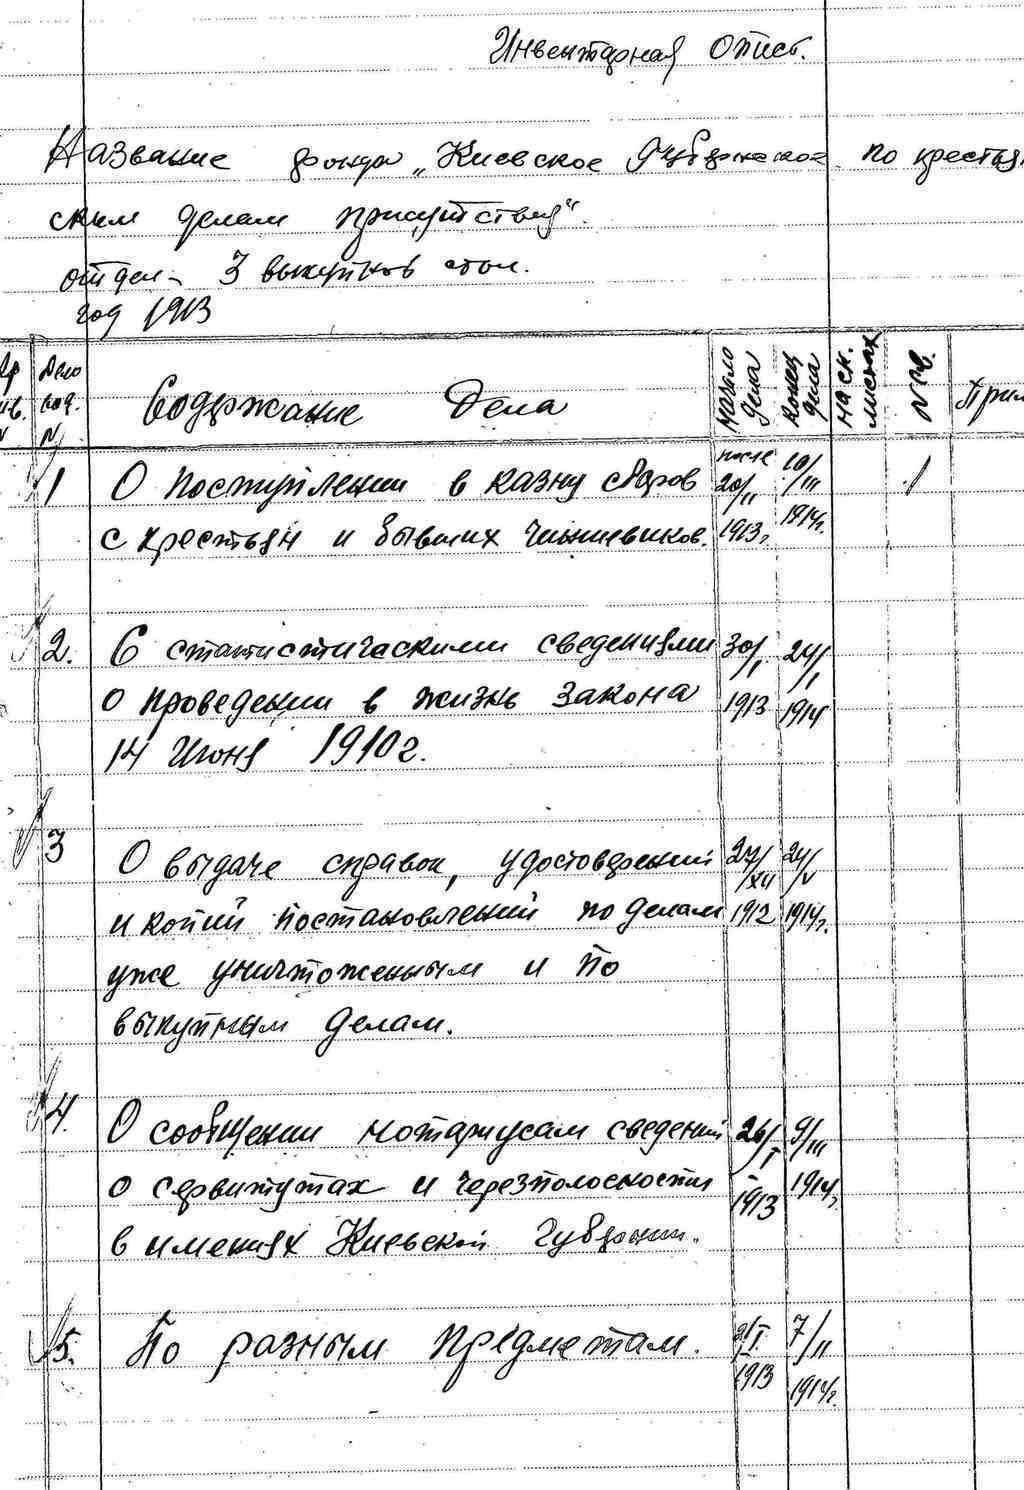 Инвентарная опись.
Название фонда „Киевское Губернское по крестья
ским делам присутствия".
отдел - 3 выкупнов стол.
год 1913
Ар
ив.
№
Дело
под.
№
Содержание Дела
Начало дела
Конец дела
На ск. листах
№ св.
Прим
1 О поступлении в казну сборов после 20/II 10/III 1
с крестьян и бывших чиншевиков. 1913г. 1914г.
2. С статистическими сведениями 30/I 24/I
о проведении в жизнь закона 1913 1914
14 Июня 1910г.
3 О выдаче справок, удостоверений 27/XII 24/V
и копий постановлений по делам 1912 1914г.
уже уничтоженным и по
выкупным делам.
4. О сообщении нотариусам сведений 26/I 9/III
о сервитутах и черезполосности 1913 1914г.
в имениях Киевской Губернии.
5. По разным предметам. 2/I 7/II
1913 1914г.